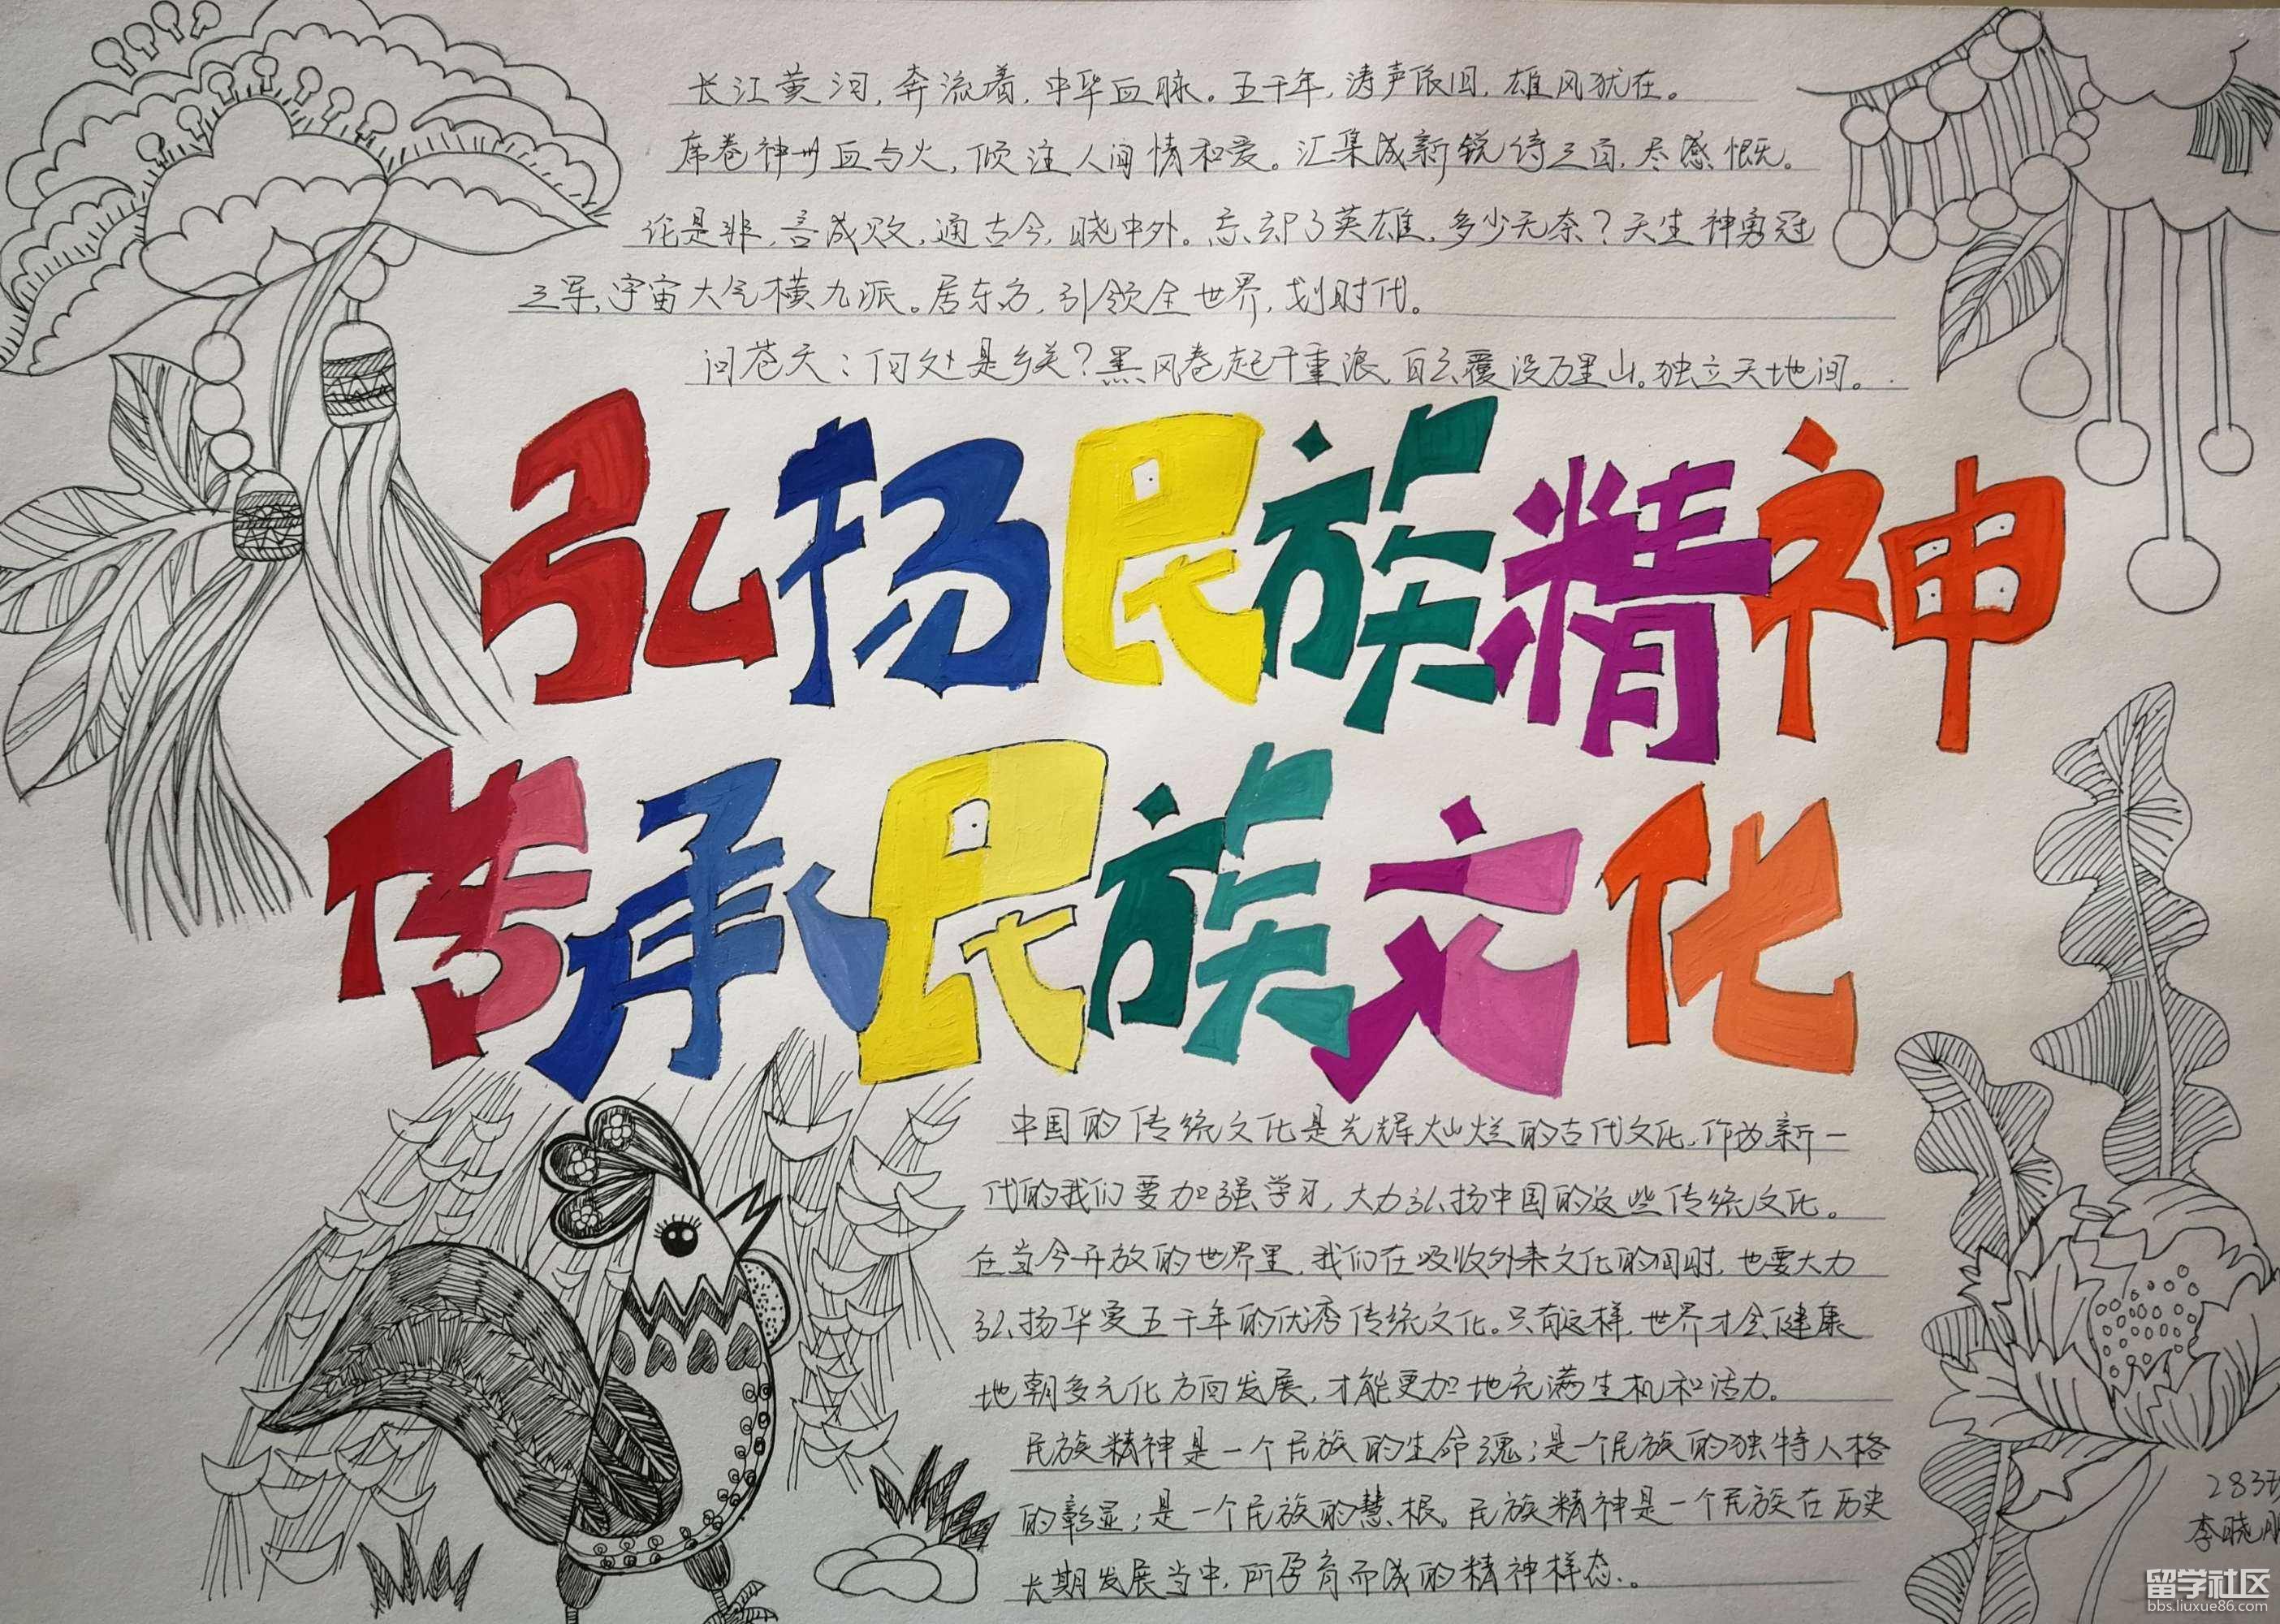 长江黄河,奔流着,中华血脉。五千年,涛声依旧,雄风犹在。
席卷神州血与火,倾注人间情和爱。汇集成新锐诗三百,尽感慨。
论是非,言成败,通古今,晓中外。忘却了英雄,多少无奈?天生神勇冠
三军,宇宙大气横九派。居东方,引领全世界,划时代。
问苍天:何处是乡关?黑风卷起千重浪,白云覆没万里山。独立天地间。
弘扬民族精神
传承民族文化
中国的传统文化是光辉灿烂的古代文化,作为新一
代的我们要加强学习,大力弘扬中国的这些传统文化。
在当今开放的世界里,我们在吸收外来文化的同时,也要大力
弘扬华夏五千年的优秀传统文化。只有这样,世界才会健康
地朝多元化方向发展,才能更加地充满生机和活力。
民族精神是一个民族的生命魂;是一个民族的独特人格
的彰显;是一个民族的慧根。民族精神是一个民族在历史
长期发展当中,所孕育而成的精神样态。
283班
李晓
留学社区
bbs.liuxue86.com